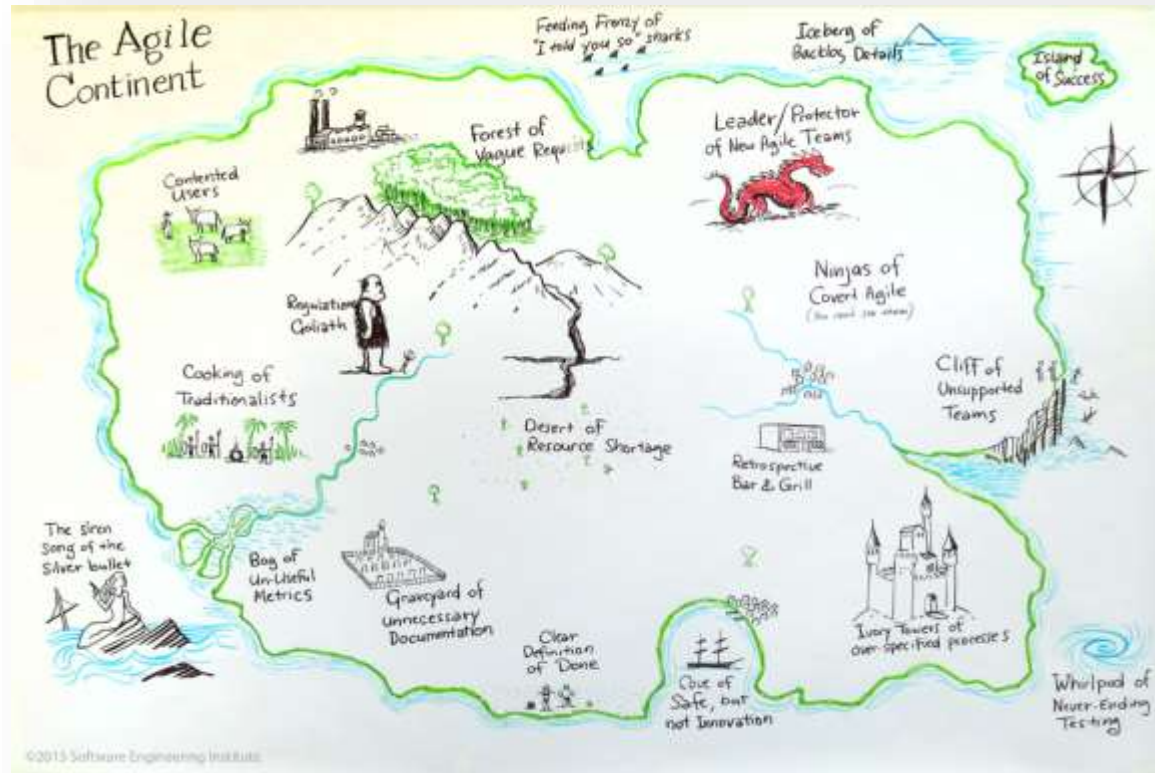 The Agile
Continent
Feeding Frenzy of
"I told you so" sharks
Iceberg of
Backlog Details
Island
of Success
Forest of
Vague Reqmts
Leader/Protector
of New Agile Teams
Contented
Users
Ninjas of
Covert Agile
Goliath
Cooking of
Traditionalists
Cliff of
Unsupported
Teams
Desert of
Resource Shortage
Retrospective
Bar & Grill
The siren
song of the
Silver bullet
Bog of
Un-Useful
Metrics
Graveyard of
unnecessary
Documentation
Clear
Definition
of Done
Cove of
Safe, but
not Innovation
Ivory Towers of
over-specified processes
Whirlpool of
Never-Ending
Testing
©2015 Software Engineering Institute